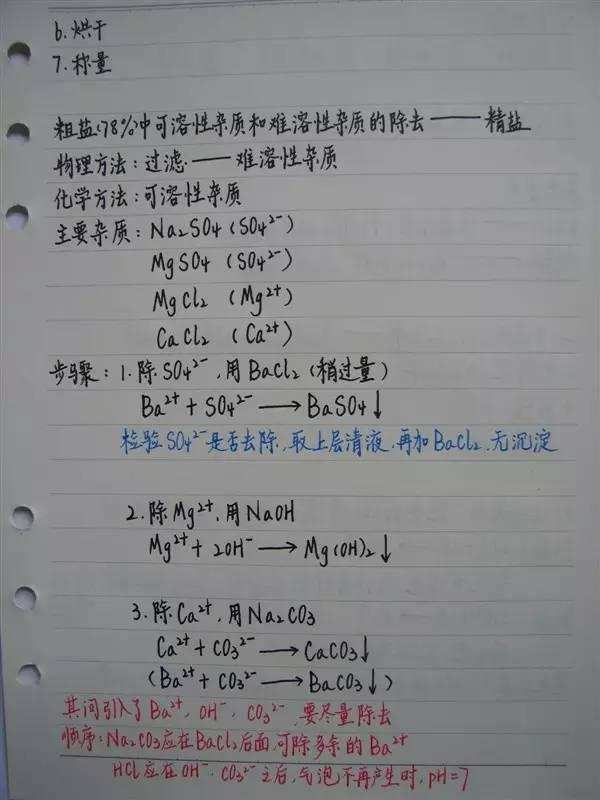 6.烘干
7.称量
粗盐(78%)中可溶性杂质和难溶性杂质的除去——精盐
物理方法:过滤——难溶性杂质
化学方法:可溶性杂质
主要杂质:Na₂SO₄(SO₄²⁻)
MgSO₄(SO₄²⁻)
MgCl₂(Mg²⁺)
CaCl₂(Ca²⁺)
步骤:1.除SO₄²⁻,用BaCl₂(稍过量)
Ba²⁺+SO₄²⁻⟶BaSO₄↓
检验SO₄²⁻是否去除,取上层清液,再加BaCl₂,无沉淀
2.除Mg²⁺,用NaOH
Mg²⁺+2OH⁻⟶Mg(OH)₂↓
3.除Ca²⁺,用Na₂CO₃
Ca²⁺+CO₃²⁻⟶CaCO₃↓
(Ba²⁺+CO₃²⁻⟶BaCO₃↓)
其间引入了Ba²⁺、OH⁻、CO₃²⁻,要尽量除去
顺序:Na₂CO₃应在BaCl₂后面,可除多余的Ba²⁺
HCl应在OH⁻、CO₃²⁻之后,气泡不再产生时,pH=7